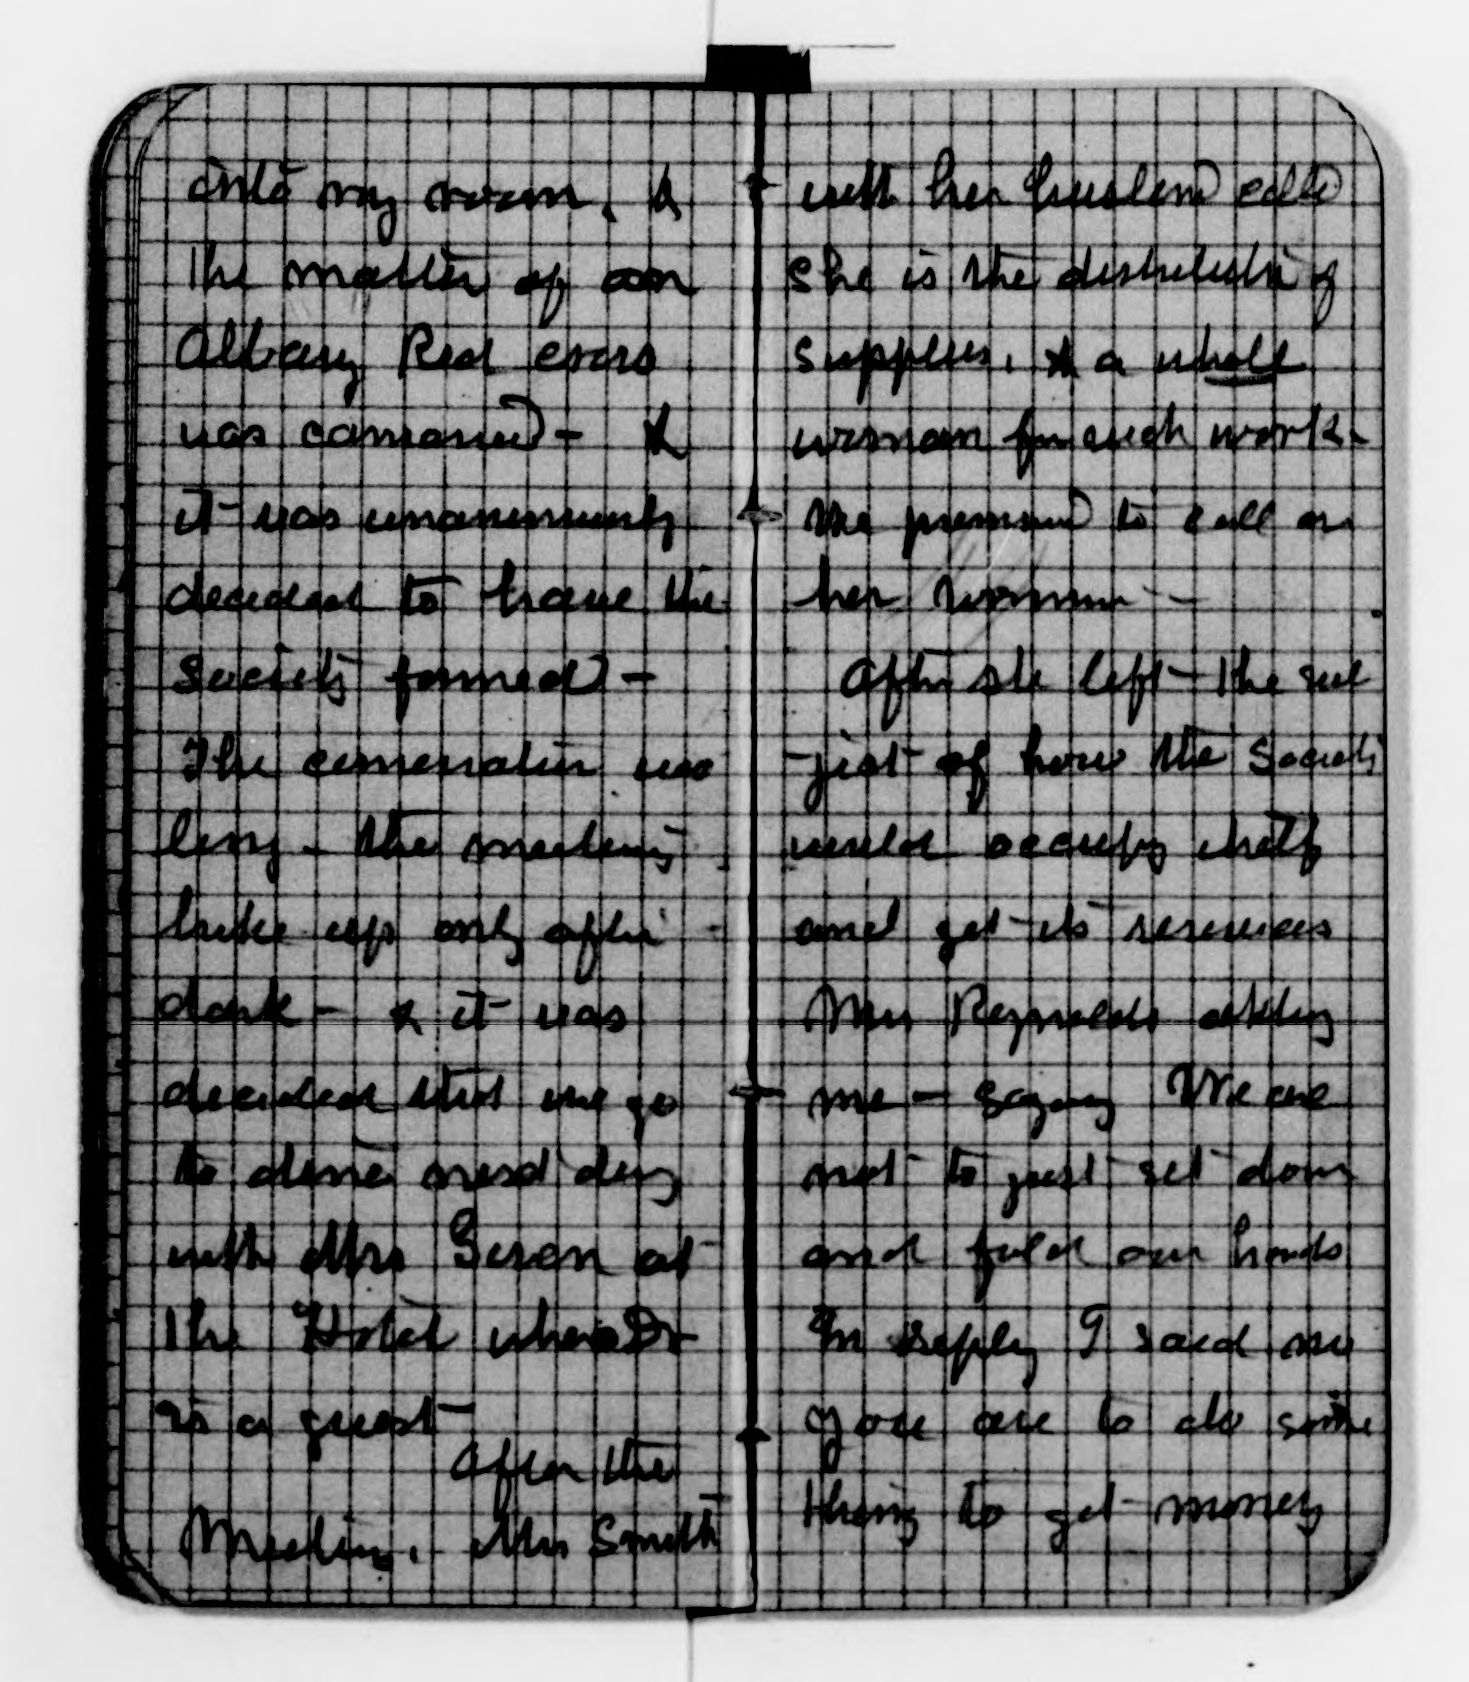 into my room. &
the matter of an
Albany Red cross
was canvassed - &
it was unanimously
decided to have the
Society formed -
The conversation was
long - the meeting
broke up only after
dark - & it was
decided that we go
to dine next day
with Mrs
at
the Hotel where
is a guest -
After the
Meeting. Mrs Smith
with her husband calls
She is the distributor of
supplies. & a whole
woman for such work -
We promised to call on
her tomorrow -
After she left - the sub
-ject of how the Society
would occupy itself
and get its resources
Mrs Reynolds asking
me - saying We are
not to just set down
and fold our hands
In reply I said no
you are to do some
thing to get money